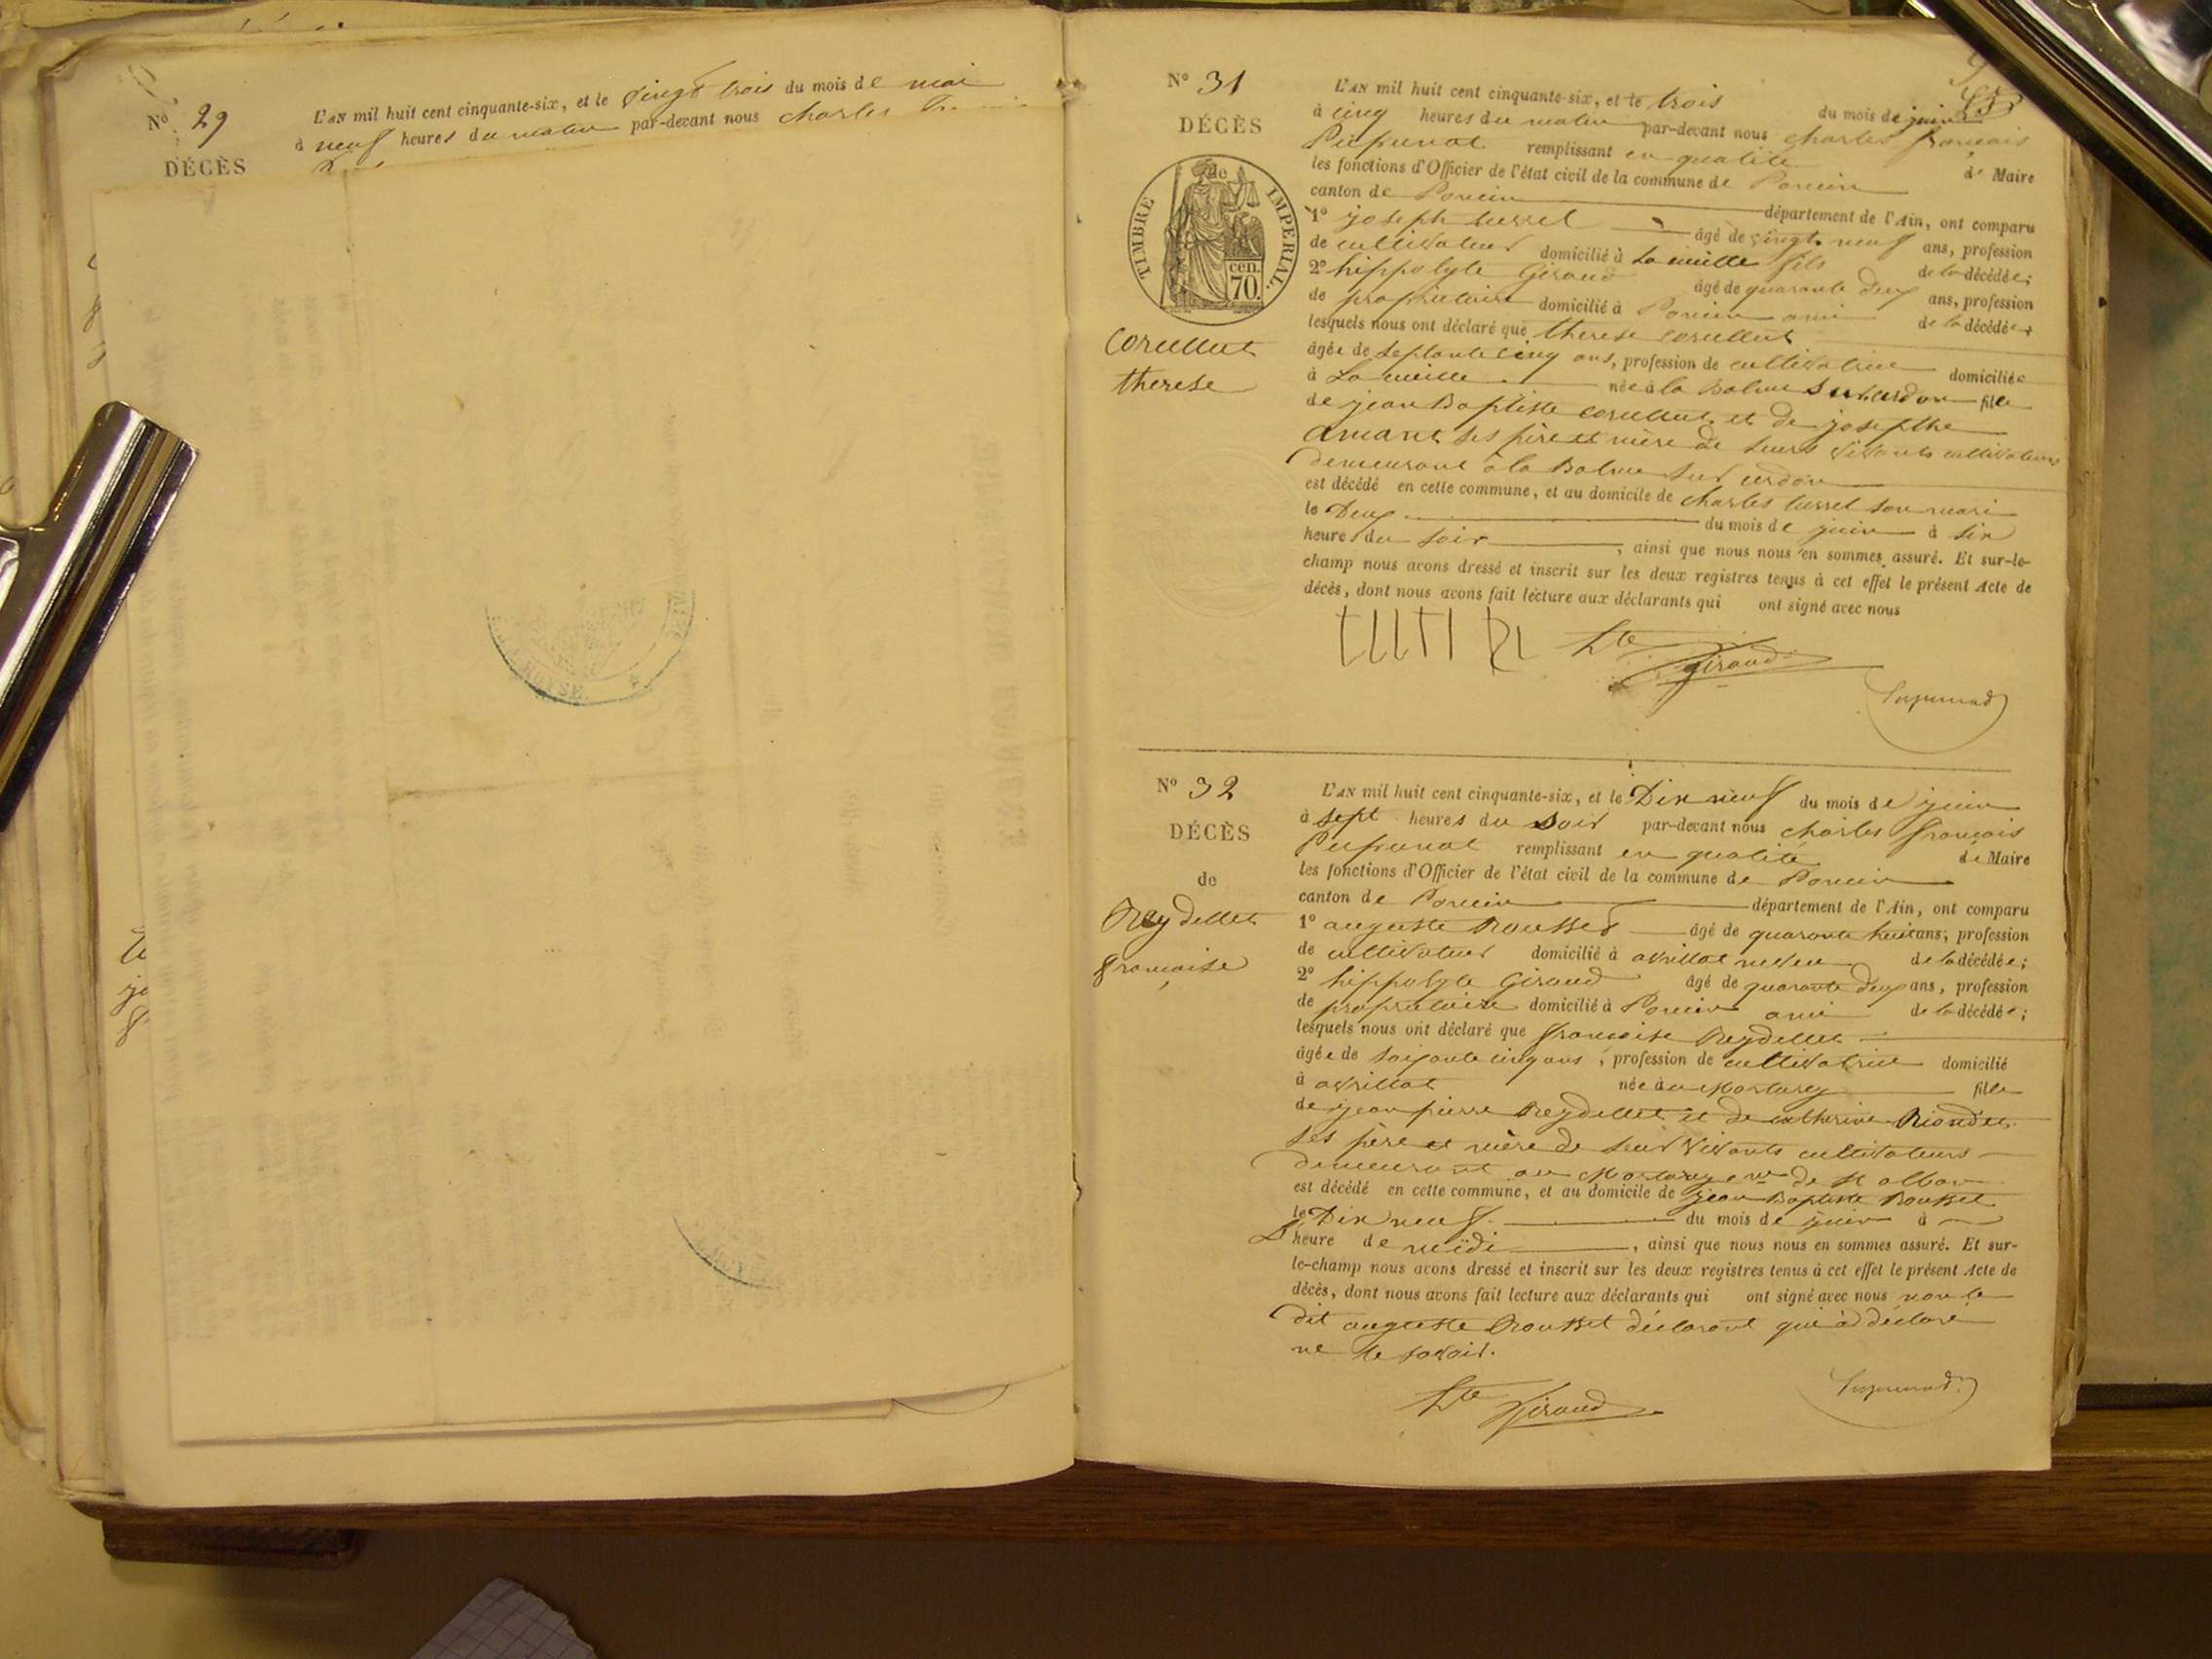 N° 29
DÉCÈS
L'AN mil huit cent cinquante-six, et le vingt trois du mois de mai
à neuf heures du matin par-devant nous charles
N° 31
DÉCÈS
de
TIMBRE IMPERIAL.
70 cen.
corcellut
therese
L'AN mil huit cent cinquante-six, et le trois du mois de juin
à cinq heures du matin par-devant nous charles francais
remplissant en qualité de Maire
les fonctions d'Officier de l'état civil de la commune de Poncin
canton de Poncin département de l'Ain, ont comparu
1° joseph turrel âgé de vingt neuf ans, profession
de cultivateur domicilié à La cueille fils de la décédée;
2° hippolyte Giraud âgé de quarante deux ans, profession
de propriétaire domicilié à Poncin ami de la décédée
lesquels nous ont déclaré que therese corcellut
âgée de septante cinq ans, profession de cultivatrice domiciliée
à La cueille née à la Balme sur cerdon fille
de jean Baptiste corcellut et de josephte
amant ses père et mère de leurs vivants cultivateurs
demeurant à la Balme sur cerdon
est décédé en cette commune, et au domicile de charles turrel son mari
le Deux du mois de juin à six
heures du soir, ainsi que nous nous en sommes assuré. Et sur-le-
champ nous avons dressé et inscrit sur les deux registres tenus à cet effet le présent Acte de
décès, dont nous avons fait lecture aux déclarants qui ont signé avec nous
hte Giraud
N° 32
DÉCÈS
de
Reydellet
francoise
L'AN mil huit cent cinquante-six, et le Dix neuf du mois de juin
à sept heures du soir par-devant nous charles francois
remplissant en qualité de Maire
les fonctions d'Officier de l'état civil de la commune de Poncin
canton de Poncin département de l'Ain, ont comparu
1° auguste Rousset âgé de quarante huit ans, profession
de cultivateur domicilié à avrillat neveu de la décédée;
2° hippolyte Giraud âgé de quarante deux ans, profession
de propriétaire domicilié à Poncin ami de la décédée;
lesquels nous ont déclaré que francoise Reydellet
âgée de soixante cinq ans, profession de cultivatrice domicilié
à avrillat née au Mortarey fille
de jean pierre Reydellet et de catherine
ses père et mère de leur vivants cultivateurs
demeurant au Mortarey cne de st alban
est décédé en cette commune, et au domicile de jean Baptiste Rousset
le Dix neuf du mois de juin à
L'heure de midi, ainsi que nous nous en sommes assuré. Et sur-
le-champ nous avons dressé et inscrit sur les deux registres tenus à cet effet le présent Acte de
décès, dont nous avons fait lecture aux déclarants qui ont signé avec nous non le
dit auguste Rousset déclarant qui a déclaré
ne le savoir.
hte Giraud